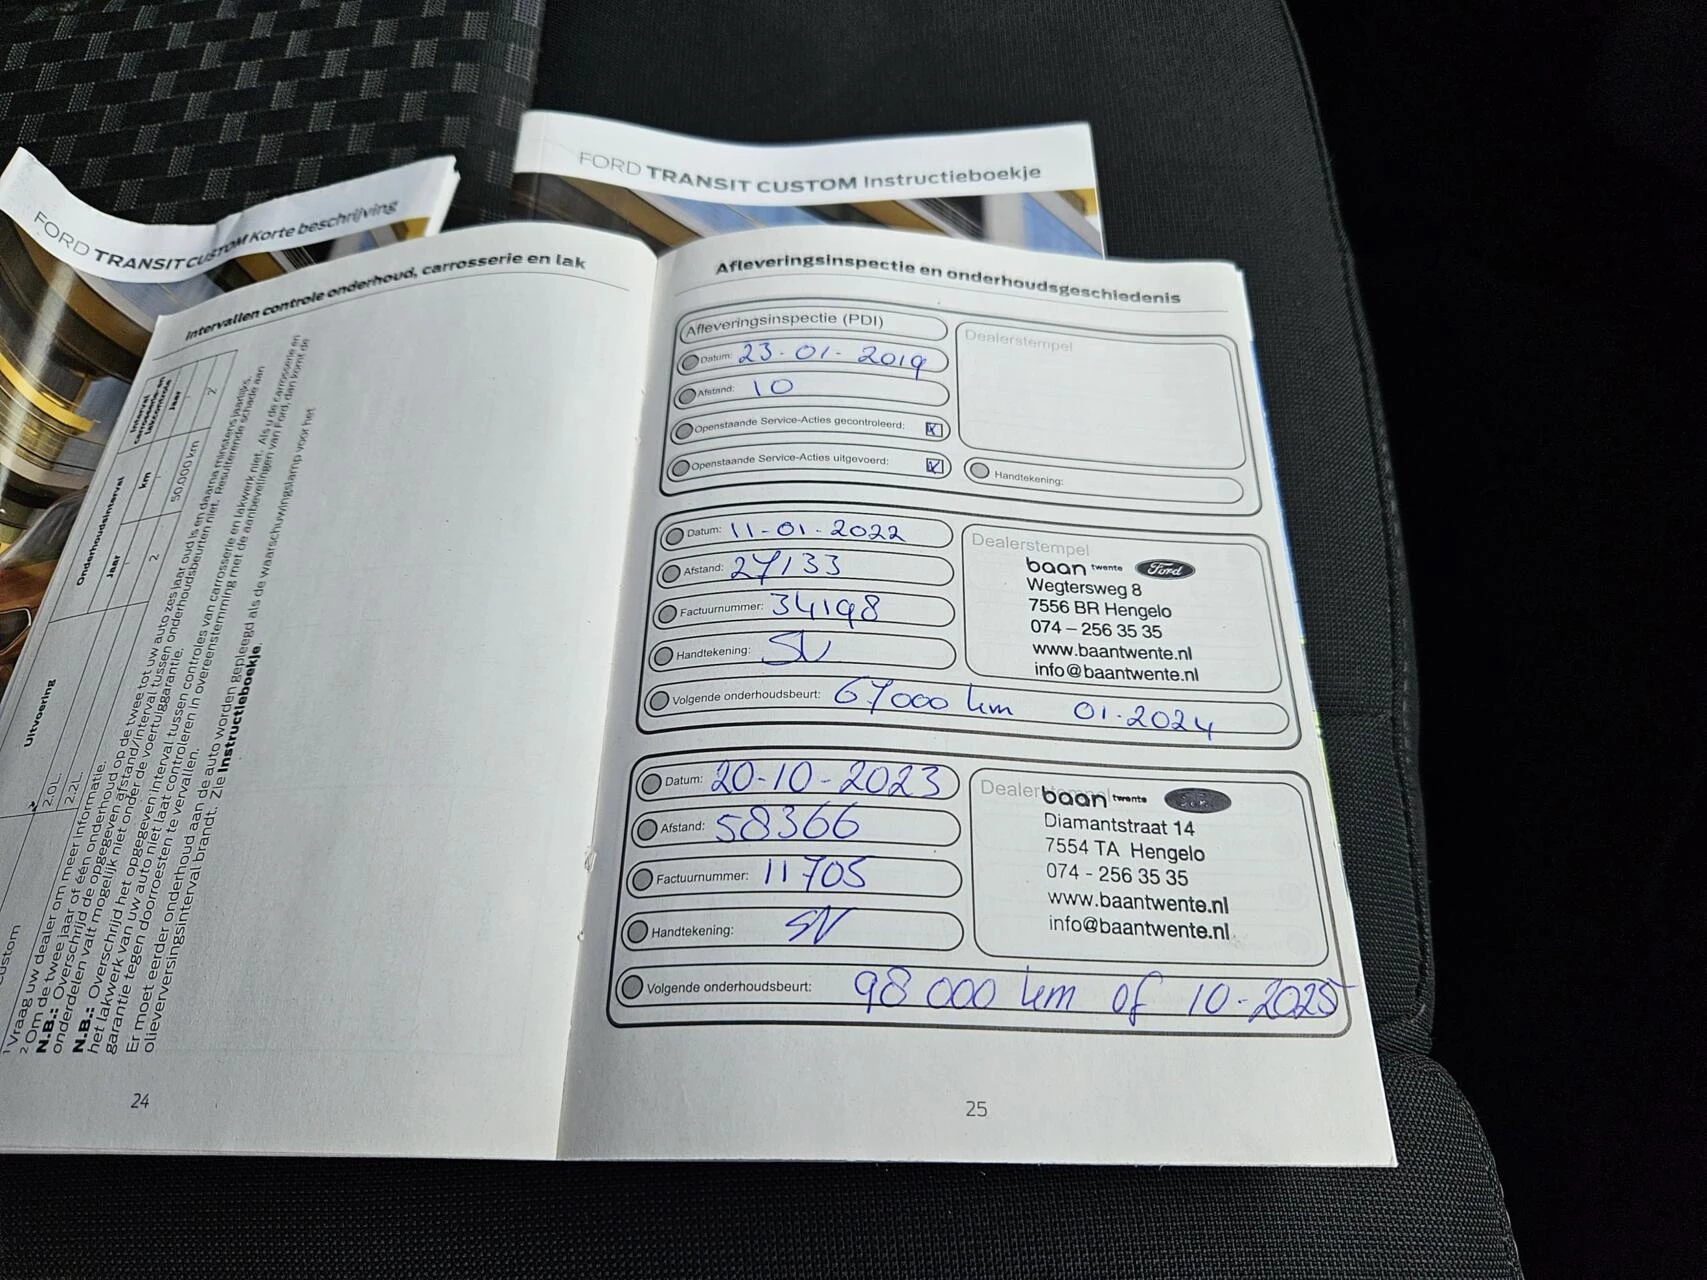 FORD TRANSIT CUSTOM Korte beschrijving
FORD TRANSIT CUSTOM Instructieboekje
Intervallen controle onderhoud, carrosserie en lak
Uitvoering
Onderhoudsinterval
Interval carrosserie- en lakcontrole
Jaar
km
Jaar
2.0L
2.2L
2
50.000 km
2
¹ Vraag uw dealer om meer informatie.
² Om de twee jaar of één onderhoud op de twee tot uw auto zes jaar oud is en daarna minstens jaarlijks.
N.B.: Overschrijd de opgegeven afstand/interval tussen onderhoudsbeurten niet. Resulterende schade aan
onderdelen valt mogelijk niet onder de voertuiggarantie.
N.B.: Overschrijd het opgegeven interval tussen controles van carrosserie en lakwerk niet. Als u de carrosserie en
het lakwerk van uw auto niet laat controleren in overeenstemming met de aanbevelingen van Ford, dan komt de
garantie tegen doorroesten te vervallen.
Er moet eerder onderhoud aan de auto worden gepleegd als de waarschuwingslamp voor het
olieverversingsinterval brandt. Zie Instructieboekje.
24
Afleveringsinspectie en onderhoudsgeschiedenis
Afleveringsinspectie (PDI)
Datum: 23-01-2019
Afstand: 10
Openstaande Service-Acties gecontroleerd:
Openstaande Service-Acties uitgevoerd:
Dealerstempel
Handtekening:
Datum: 11-01-2022
Afstand: 27133
Factuurnummer: 34198
Handtekening:
Volgende onderhoudsbeurt: 67000 km 01-2024
Dealerstempel
baan twente Ford
Wegtersweg 8
7556 BR Hengelo
074 – 256 35 35
www.baantwente.nl
info@baantwente.nl
Datum: 20-10-2023
Afstand: 58366
Factuurnummer: 11705
Handtekening:
Volgende onderhoudsbeurt: 98 000 km of 10-2025
Dealerstempel
baan twente
Diamantstraat 14
7554 TA Hengelo
074 - 256 35 35
www.baantwente.nl
info@baantwente.nl
25